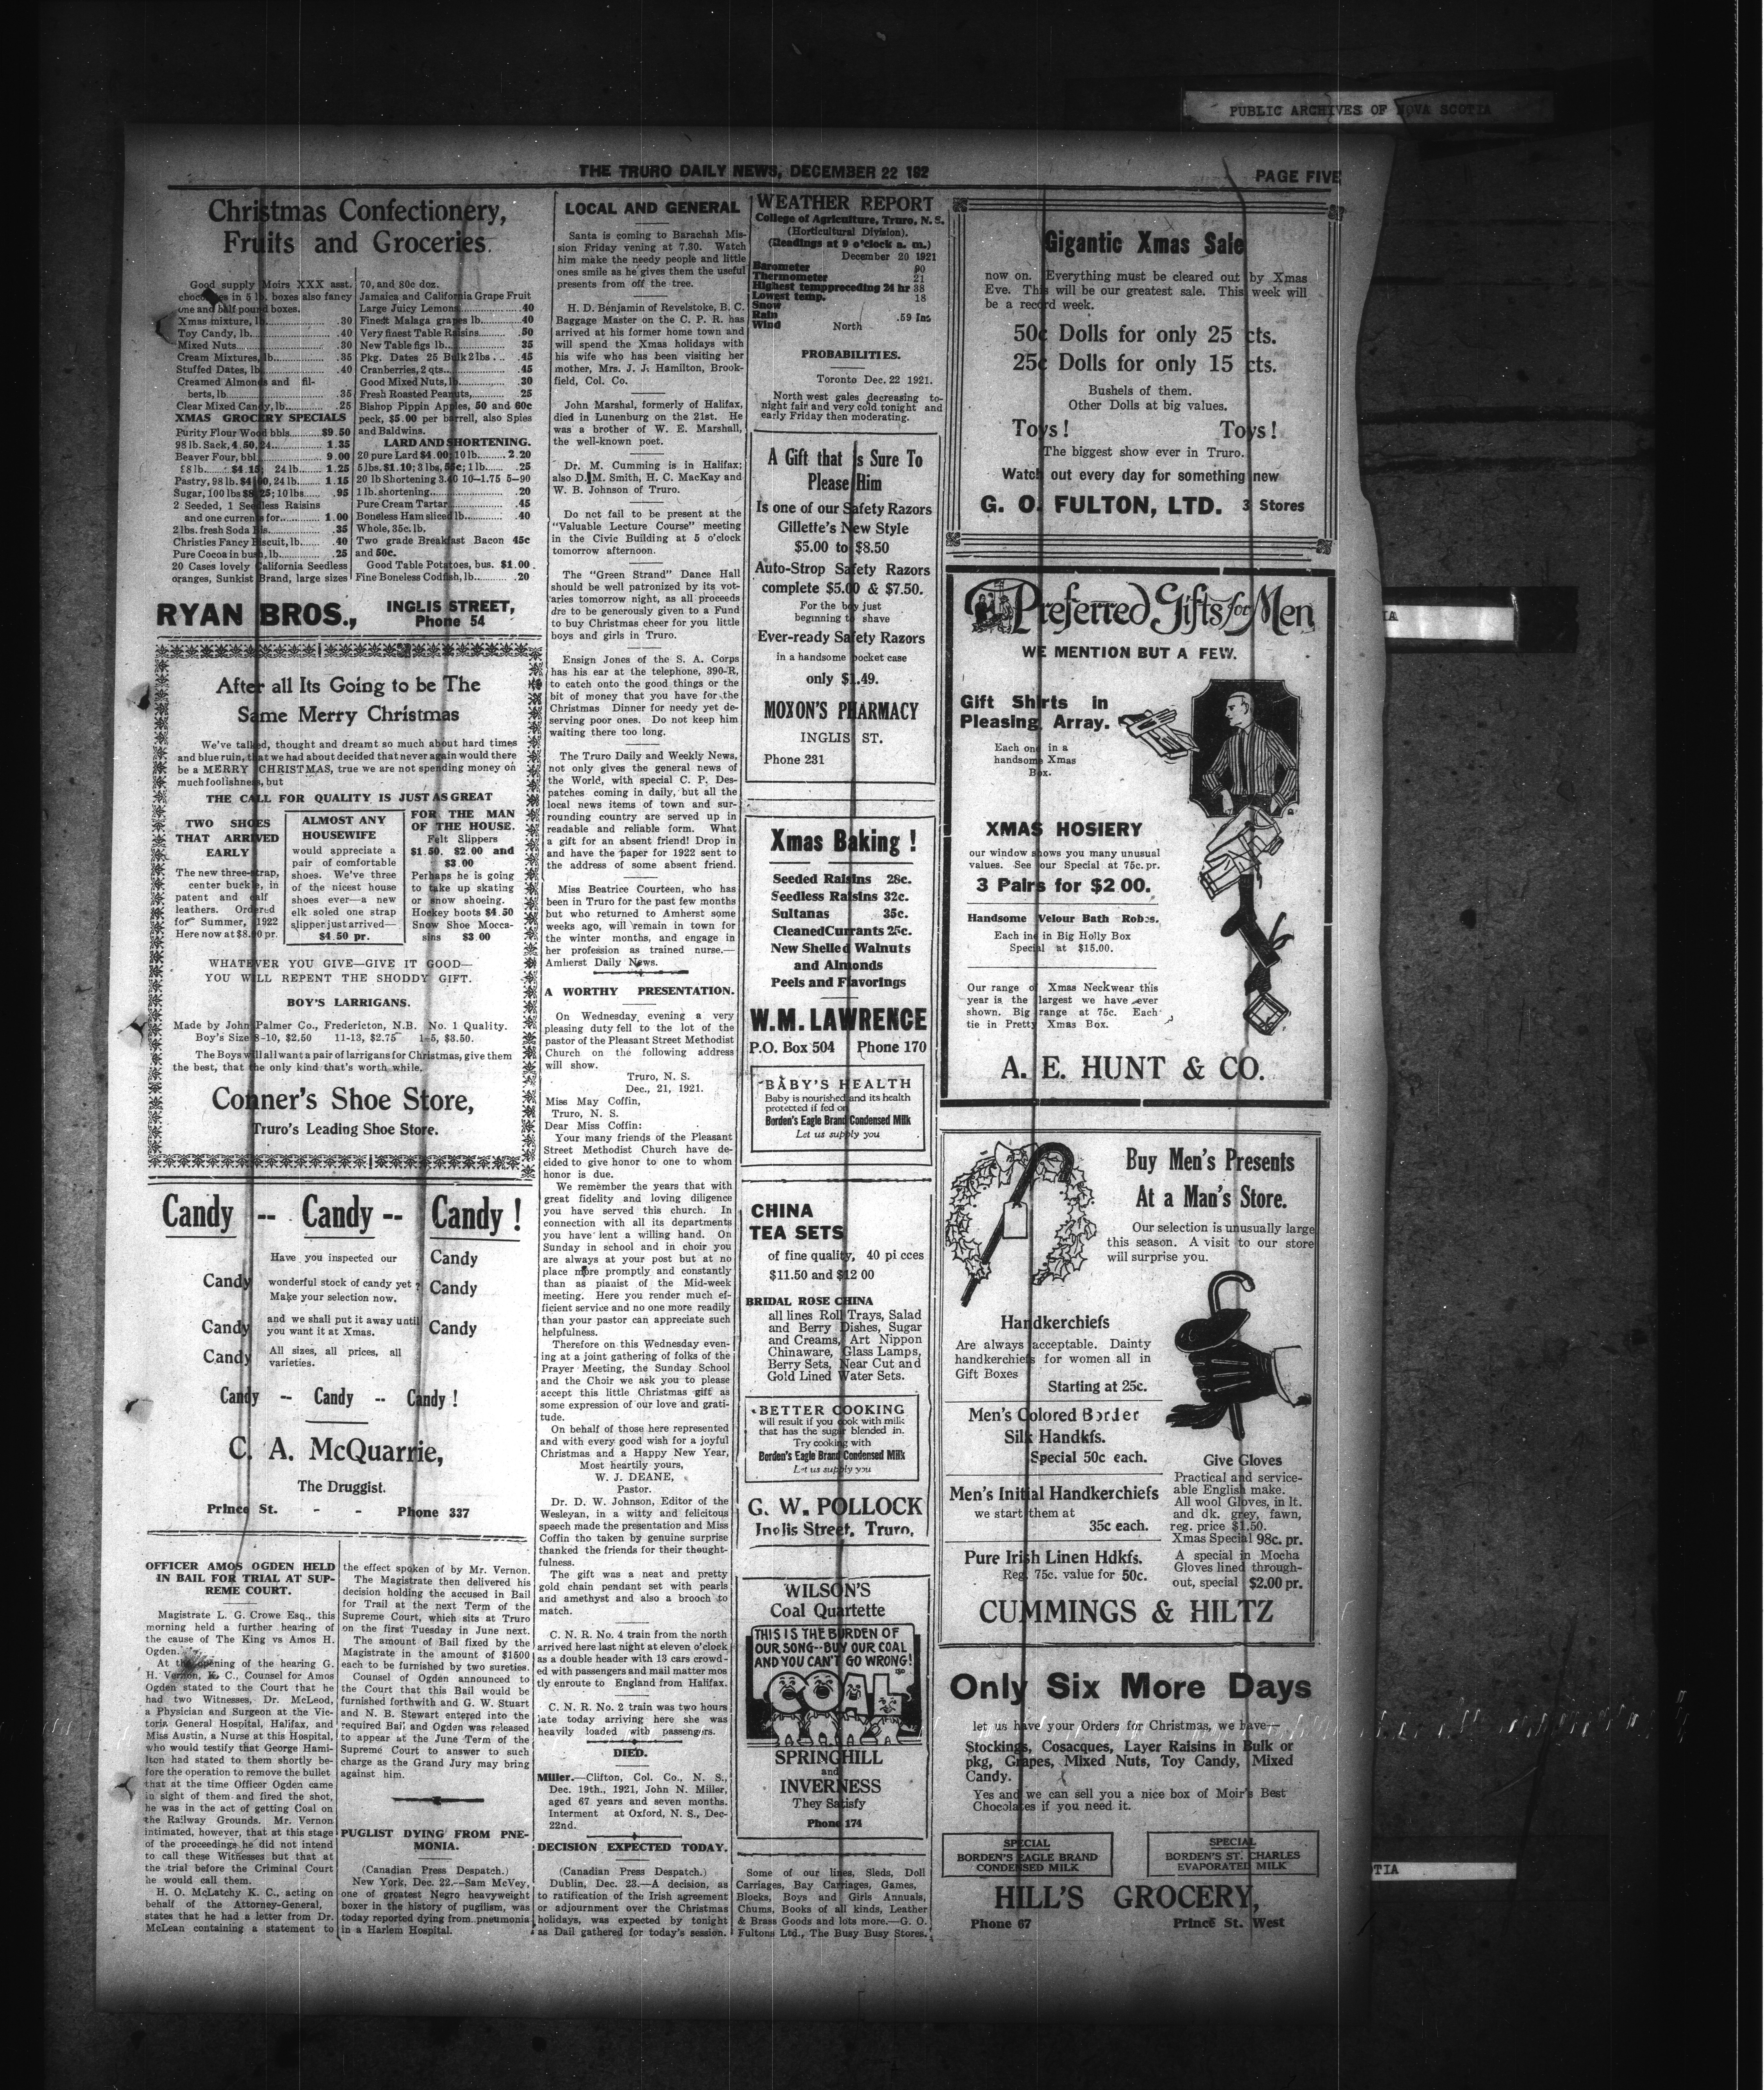 PUBLIC ARCHIVES OF NOVA SCOTIA
THE TRURO DAILY NEWS, DECEMBER 22 192
PAGE FIVE
Christmas Confectionery,
Fruits and Groceries.
Good supply Moirs XXX asst.
in 5 lb. boxes also fancy
one and half pound boxes.
Xmas mixture, lb. .30
Toy Candy, lb. .40
Mixed Nuts .30
Cream Mixtures, lb. .35
Stuffed Dates, lb. .40
Creamed Almonds and fil-
berts, lb. 35
Clear Mixed Candy, lb. .25
XMAS GROCERY SPECIALS
Purity Flour Wood bbls. $9.50
98 lb. Sack, 4.50, 24 1.35
Beaver Four, bbl. 9.00
£8 lb. $4.15; 24 lb. 1.25
Pastry, 98 lb. 24 lb. 1.15
Sugar, 100 lbs 10 lbs. .95
2 Seeded, 1 Seedless Raisins
and one currents for 1.00
2 lbs. fresh Soda Bis. .35
Christies Fancy Biscuit, lb. .40
Pure Cocoa in bush, lb. .25
20 Cases lovely California Seedless
oranges, Sunkist Brand, large sizes
70, and 80c doz.
Jamaica and California Grape Fruit
Large Juicy Lemons .40
Finest Malaga grapes lb. .40
Very finest Table Raisins .50
New Table figs lb. 35
Pkg. Dates 25 Bulk 2 lbs .45
Cranberries, 2 qts. .45
Good Mixed Nuts, lb. .30
Fresh Roasted Peanuts, .25
Bishop Pippin Apples, 50 and 60c
peck, $5.00 per barrell, also Spies
and Baldwins.
LARD AND SHORTENING.
20 pure Lard $4.00; 10 lb. 2.20
5 lbs. $1.10; 3 lbs, 1 lb. .25
20 lb Shortening 10-1.75 5-90
1 lb. shortening .20
Pure Cream Tartar .45
Boneless Ham sliced lb. .40
Whole, 35c. lb.
Two grade Breakfast Bacon 45c
and 50c.
Good Table Potatoes, bus. $1.00
Fine Boneless Codfish, lb. .20
RYAN BROS.,
INGLIS STREET,
Phone 54
After all Its Going to be The
Same Merry Christmas
We've talked, thought and dreamt so much about hard times
and blue ruin, that we had about decided that never again would there
be a MERRY CHRISTMAS, true we are not spending money on
much foolishness, but
THE CALL FOR QUALITY IS JUST AS GREAT
TWO SHOES
THAT ARRIVED
EARLY
The new three-strap,
center buckle, in
patent and calf
leathers. Ordered
for Summer, 1922
Here now at pr.
ALMOST ANY
HOUSEWIFE
would appreciate a
pair of comfortable
shoes. We've three
of the nicest house
shoes ever—a new
elk soled one strap
slipper just arrived—
$4.50 pr.
FOR THE MAN
OF THE HOUSE.
Felt Slippers
$1.50. $2.00 and
$3.00
Perhaps he is going
to take up skating
or snow shoeing.
Hockey boots $4.50
Snow Shoe Mocca-
sins $3.00
WHATEVER YOU GIVE—GIVE IT GOOD—
YOU WILL REPENT THE SHODDY GIFT.
BOY'S LARRIGANS.
Made by John Palmer Co., Fredericton, N.B. No. 1 Quality.
Boy's Size 8-10, $2.50 11-13, $2.75 1-5, $3.50.
The Boys will all want a pair of larrigans for Christmas, give them
the best, that the only kind that's worth while.
Conner's Shoe Store,
Truro's Leading Shoe Store.
Candy -- Candy -- Candy !
Have you inspected our Candy
Candy wonderful stock of candy yet ? Candy
Make your selection now,
Candy and we shall put it away until Candy
you want it at Xmas.
Candy All sizes, all prices, all
varieties.
Candy -- Candy -- Candy !
C. A. McQuarrie,
The Druggist.
Prince St. - - Phone 337
OFFICER AMOS OGDEN HELD
IN BAIL FOR TRIAL AT SUP-
REME COURT.
Magistrate L. G. Crowe Esq., this
morning held a further hearing of
the cause of The King vs Amos H.
Ogden.
At the opening of the hearing G.
H. Vernon, K. C., Counsel for Amos
Ogden stated to the Court that he
had two Witnesses, Dr. McLeod,
a Physician and Surgeon at the Vic-
toria General Hospital, Halifax, and
Miss Austin, a Nurse at this Hospital,
who would testify that George Hami-
lton had stated to them shortly be-
fore the operation to remove the bullet
that at the time Officer Ogden came
in sight of them and fired the shot,
he was in the act of getting Coal on
the Railway Grounds. Mr. Vernon
intimated, however, that at this stage
of the proceedings he did not intend
to call these Witnesses but that at
the trial before the Criminal Court
he would call them.
H. O. McLatchy K. C., acting on
behalf of the Attorney-General,
states that he had a letter from Dr.
McLean containing a statement to
the effect spoken of by Mr. Vernon.
The Magistrate then delivered his
decision holding the accused in Bail
for Trail at the next Term of the
Supreme Court, which sits at Truro
on the first Tuesday in June next.
The amount of Bail fixed by the
Magistrate in the amount of $1500
each to be furnished by two sureties.
Counsel of Ogden announced to
the Court that this Bail would be
furnished forthwith and G. W. Stuart
and N. B. Stewart entered into the
required Bail and Ogden was released
to appear at the June Term of the
Supreme Court to answer to such
charge as the Grand Jury may bring
against him.
PUGLIST DYING FROM PNE-
MONIA.
(Canadian Press Despatch.)
New York, Dec. 22.—Sam McVey,
one of greatest Negro heavyweight
boxer in the history of pugilism, was
today reported dying from pneumonia
in a Harlem Hospital.
LOCAL AND GENERAL
Santa is coming to Barachah Mis-
sion Friday vening at 7.30. Watch
him make the needy people and little
ones smile as he gives them the useful
presents from off the tree.
H. D. Benjamin of Revelstoke, B. C.
Baggage Master on the C. P. R. has
arrived at his former home town and
will spend the Xmas holidays with
his wife who has been visiting her
mother, Mrs. J. J. Hamilton, Brook-
field, Col. Co.
John Marshal, formerly of Halifax,
died in Lunenburg on the 21st. He
was a brother of W. E. Marshall,
the well-known poet.
Dr. M. Cumming is in Halifax;
also D. M. Smith, H. C. MacKay and
W. B. Johnson of Truro.
Do not fail to be present at the
"Valuable Lecture Course" meeting
in the Civic Building at 5 o'clock
tomorrow afternoon.
The "Green Strand" Dance Hall
should be well patronized by its vot-
aries tomorrow night, as all proceeds
are to be generously given to a Fund
to buy Christmas cheer for you little
boys and girls in Truro.
Ensign Jones of the S. A. Corps
has his ear at the telephone, 390-R,
to catch onto the good things or the
bit of money that you have for the
Christmas Dinner for needy yet de-
serving poor ones. Do not keep him
waiting there too long.
The Truro Daily and Weekly News,
not only gives the general news of
the World, with special C. P. Des-
patches coming in daily, but all the
local news items of town and sur-
rounding country are served up in
readable and reliable form. What
a gift for an absent friend! Drop in
and have the paper for 1922 sent to
the address of some absent friend.
Miss Beatrice Courteen, who has
been in Truro for the past few months
but who returned to Amherst some
weeks ago, will remain in town for
the winter months, and engage in
her profession as trained nurse.—
Amherst Daily News.
A WORTHY PRESENTATION.
On Wednesday evening a very
pleasing duty fell to the lot of the
pastor of the Pleasant Street Methodist
Church on the following address
will show.
Truro, N. S.
Dec., 21, 1921.
Miss May Coffin,
Truro, N. S.
Dear Miss Coffin:
Your many friends of the Pleasant
Street Methodist Church have de-
cided to give honor to one to whom
honor is due.
We remember the years that with
great fidelity and loving diligence
you have served this church. In
connection with all its departments
you have lent a willing hand. On
Sunday in school and in choir you
are always at your post but at no
place more promptly and constantly
than as pianist of the Mid-week
meeting. Here you render much ef-
ficient service and no one more readily
than your pastor can appreciate such
helpfulness.
Therefore on this Wednesday even-
ing at a joint gathering of folks of the
Prayer Meeting, the Sunday School
and the Choir we ask you to please
accept this little Christmas gift as
some expression of our love and grati-
tude.
On behalf of those here represented
and with every good wish for a joyful
Christmas and a Happy New Year,
Most heartily yours,
W. J. DEANE,
Pastor.
Dr. D. W. Johnson, Editor of the
Wesleyan, in a witty and felicitous
speech made the presentation and Miss
Coffin tho taken by genuine surprise
thanked the friends for their thought-
fulness.
The gift was a neat and pretty
gold chain pendant set with pearls
and amethyst and also a brooch to
match.
C. N. R. No. 4 train from the north
arrived here last night at eleven o'clock
as a double header with 13 cars crowd-
ed with passengers and mail matter mos
tly enroute to England from Halifax.
C. N. R. No. 2 train was two hours
late today arriving here she was
heavily loaded with passengers.
DIED.
Miller.—Clifton, Col. Co., N. S.,
Dec. 19th., 1921, John N. Miller,
aged 67 years and seven months.
Interment at Oxford, N. S., Dec-
22nd.
DECISION EXPECTED TODAY.
(Canadian Press Despatch.)
Dublin, Dec. 23.—A decision, as
to ratification of the Irish agreement
or adjournment over the Christmas
holidays, was expected by tonight
as Dail gathered for today's session.
WEATHER REPORT
College of Agriculture, Truro, N. S.
(Horticultural Division).
(Readings at 9 o'clock a. m.)
December 20 1921
Barometer 90
Thermometer 21
Highest temp preceding 24 hr 38
Lowest temp. 18
Snow
Rain .59 Ins
Wind North
PROBABILITIES.
Toronto Dec. 22 1921.
North west gales decreasing to-
night fair and very cold tonight and
early Friday then moderating.
A Gift that Is Sure To
Please Him
Is one of our Safety Razors
Gillette's New Style
$5.00 to $8.50
Auto-Strop Safety Razors
complete $5.00 & $7.50.
For the boy just
beginning to shave
Ever-ready Safety Razors
in a handsome pocket case
only $1.49.
MOXON'S PHARMACY
INGLIS ST.
Phone 231
Xmas Baking !
Seeded Raisins 28c.
Seedless Raisins 32c.
Sultanas 35c.
Cleaned Currants 25c.
New Shelled Walnuts
and Almonds
Peels and Flavorings
W.M. LAWRENCE
P.O. Box 504 Phone 170
BABY'S HEALTH
Baby is nourished and its health
protected if fed on
Borden's Eagle Brand Condensed Milk
Let us supply you
CHINA
TEA SETS
of fine quality, 40 pi cces
$11.50 and $12 00
BRIDAL ROSE CHINA
all lines Roll Trays, Salad
and Berry Dishes, Sugar
and Creams, Art Nippon
Chinaware, Glass Lamps,
Berry Sets, Near Cut and
Gold Lined Water Sets.
BETTER COOKING
will result if you cook with milk
that has the sugar blended in.
Try cooking with
Borden's Eagle Brand Condensed Milk
Let us supply you
G. W. POLLOCK
Inglis Street, Truro,
WILSON'S
Coal Quartette
THIS IS THE BURDEN OF
OUR SONG--BUY OUR COAL
AND YOU CAN'T GO WRONG!
COAL
SPRINGHILL
and
INVERNESS
They Satisfy
Phone 174
Some of our lines, Sleds, Doll
Carriages, Bay Carriages, Games,
Blocks, Boys and Girls Annuals,
Chums, Books of all kinds, Leather
& Brass Goods and lots more.—G. O.
Fultons Ltd., The Busy Busy Stores.
Gigantic Xmas Sale
now on. Everything must be cleared out by Xmas
Eve. This will be our greatest sale. This week will
be a record week.
50c Dolls for only 25 cts.
25c Dolls for only 15 cts.
Bushels of them.
Other Dolls at big values.
Toys ! Toys !
The biggest show ever in Truro.
Watch out every day for something new
G. O. FULTON, LTD. 3 Stores
Preferred Gifts for Men
WE MENTION BUT A FEW.
Gift Shirts in
Pleasing Array.
Each one in a
handsome Xmas
Box.
XMAS HOSIERY
our window shows you many unusual
values. See our Special at 75c. pr.
3 Pairs for $2 00.
Handsome Velour Bath Robes.
Each in Big Holly Box
Special at $15.00.
Our range of Xmas Neckwear this
year is the largest we have ever
shown. Big range at 75c. Each
tie in Pretty Xmas Box.
A. E. HUNT & CO.
Buy Men's Presents
At a Man's Store.
Our selection is unusually large
this season. A visit to our store
will surprise you.
Handkerchiefs
Are always acceptable. Dainty
handkerchiefs for women all in
Gift Boxes
Starting at 25c.
Men's Colored Border
Silk Handkfs.
Special 50c each.
Men's Initial Handkerchiefs
we start them at
35c each.
Pure Irish Linen Hdkfs.
Reg. 75c. value for 50c.
Give Gloves
Practical and service-
able English make.
All wool Gloves, in lt.
and dk. grey, fawn,
reg. price $1.50.
Xmas Special 98c. pr.
A special in Mocha
Gloves lined through-
out, special $2.00 pr.
CUMMINGS & HILTZ
Only Six More Days
let us have your Orders for Christmas, we have—
Stockings, Cosacques, Layer Raisins in Bulk or
pkg, Grapes, Mixed Nuts, Toy Candy, Mixed
Candy.
Yes and we can sell you a nice box of Moir's Best
Chocolates if you need it.
SPECIAL
BORDEN'S EAGLE BRAND
CONDENSED MILK
SPECIAL
BORDEN'S ST. CHARLES
EVAPORATED MILK
HILL'S GROCERY,
Phone 67 Prince St. West
IA
TIA